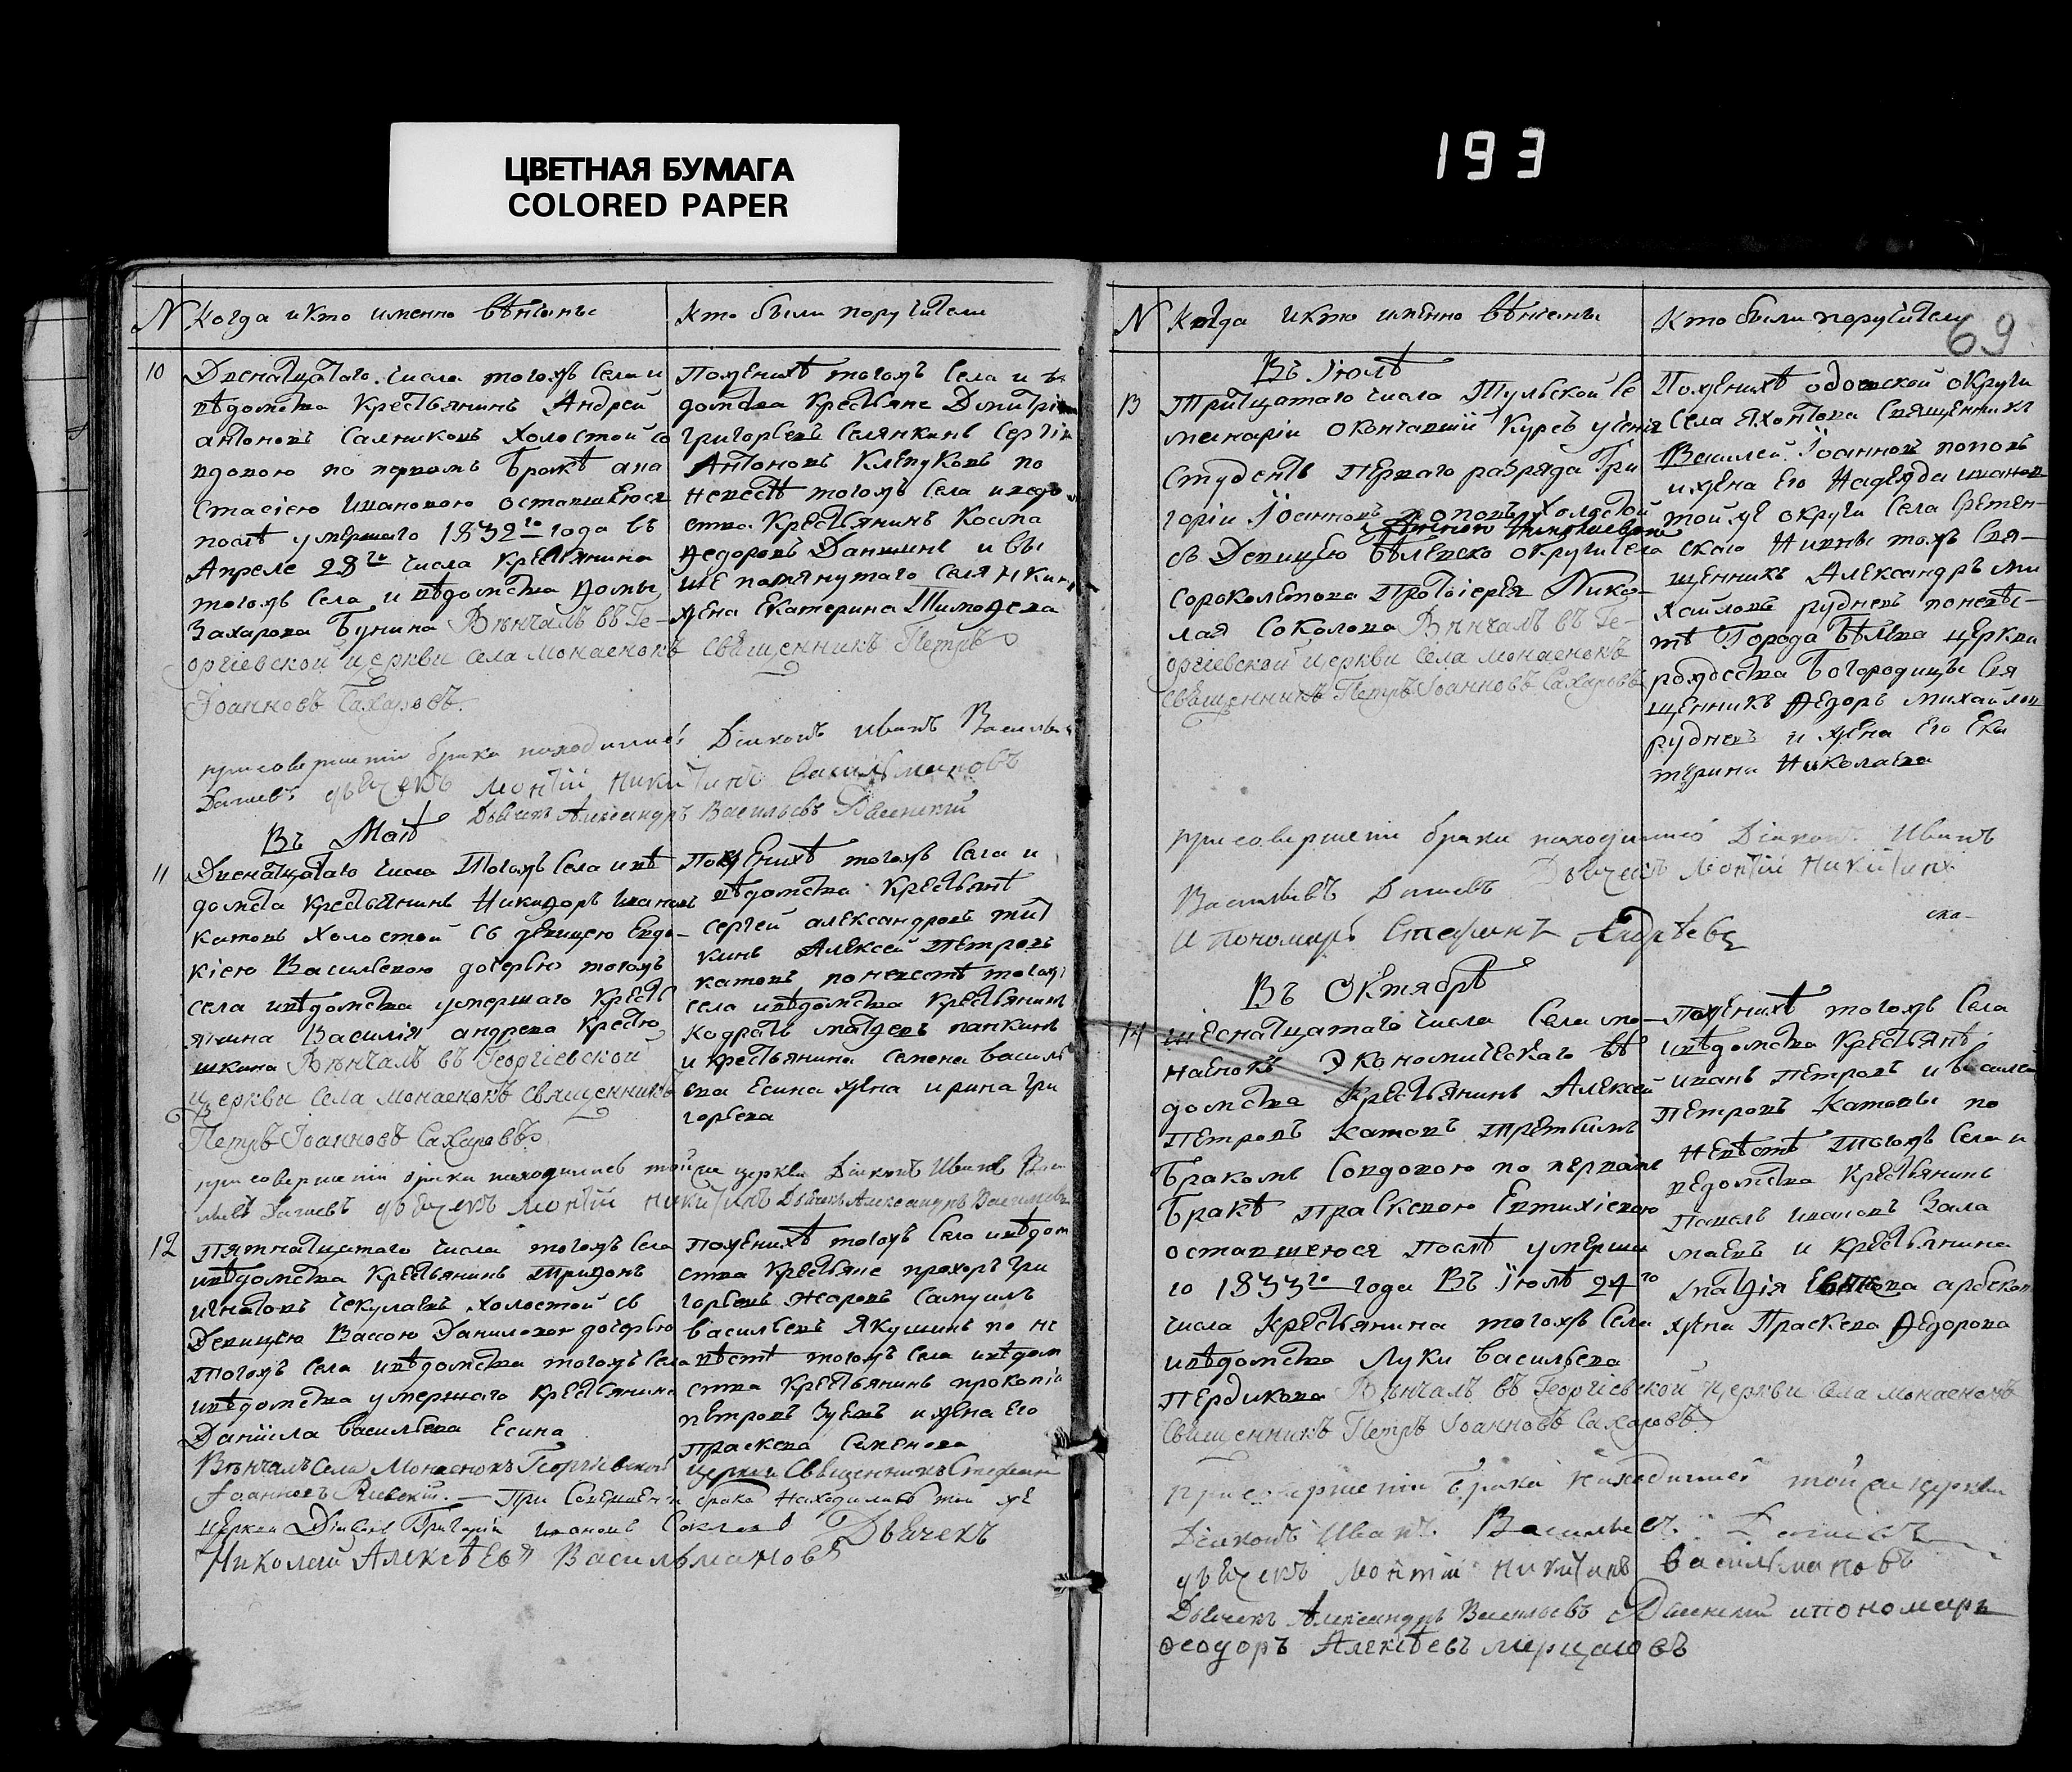 ЦВЕТНАЯ БУМАГА
COLORED PAPER
193
N Когда и кто именно вѣнчаны
Кто были поручители
10 Двенатцатаго числа тогожъ Села и
вѣдомства Крестьянинъ Андрей
антоновъ Салниковъ холостой со
вдовою по первомъ бракѣ ана
стасіею Ивановою оставшеюся
послѣ умершаго 1832го года въ
Апреле 28го числа Крестьянина
тогожъ Села и вѣдомства Ѳомы
Захарова Бунина Вѣнчалъ въ Ге-
оргіевской церкви села Монаенокъ Священникъ Петръ
Іоанновъ Сахаровъ.
По женихѣ тогожъ Села и вѣ
домства Крестьяне Дмитрій
григорьевъ Селянкинъ Сергій
Антоновъ Клепуковъ по
невестѣ тогожъ Села и ведо
ства Крестьянинъ Косма
Ѳедоровъ Даншинъ и вы
ше помянутаго Селянкина
жена Екатерина Тимоѳева
при совершеніи брака находились Діаконъ Иванъ Василье
дьячекъ Монтій Никитинъ Васильмановъ
Дьячекъ Александръ Васильевъ
Въ Маѣ
11 Двенатцатаго числа Тогожъ Села и вѣ
домства Крестьянинъ Никифоръ Ивановъ
Катовъ холостой съ девицею Евдо-
кіею Васильевою дочерью тогожъ
села и вѣдомства умершаго Кресть
янина Василія андрева Крестю
шкина Вѣнчалъ въ Георгіевской
церкви села Монаенокъ Священникъ
Петръ Іоанновъ Сахаровъ
По женихѣ тогожъ Села и
вѣдомства Крестьянѣ
сергей александровъ тит
кинъ Алексей Петровъ
катовъ по невестѣ тогожъ
села и вѣдомства Крестьянинъ
Кодратъ матѳевъ папкинъ
и крестьянина семена василь
ева Есина жена ирина гри
горьева
при совершеніи брака находились той же церкви Діаконъ Иванъ Васи
льевъ дьячекъ Монтій Никитинъ Дьячекъ Александръ Васильевъ
12 Пятнатцатаго числа тогожъ Села
и вѣдомства Крестьянинъ Трифонъ
игнатовъ Чекулаевъ холостой съ
Девицею Вассою Даниловою дочерью
Тогожъ Села и вѣдомства тогожъ Села
и вѣдомства умершаго Крестьянина
Даніила Васильева Есина
По женихѣ тогожъ Села и вѣдом
ства Крестьяне прохоръ гри
горьевъ Жаровъ Самуилъ
васильевъ Якушинъ по не
вѣстѣ тогожъ Села и вѣдом
ства Крестьянинъ прокопій
петровъ Зуевъ и жена его
праскева Семенова
Вѣнчалъ Села Монаенокъ Георгіевской церкви Священникъ Стефанъ
Іоанновъ. — При Совершеніи брака Находились той же
церкви Діаконъ Григорій Ивановъ Соколовъ Дьячекъ
Николай Алексѣевъ Васильмановъ
69
N Когда и кто имѣнно вѣнчаны
Кто были поручители
Въ Іюлѣ
13 Тритцатаго числа Тульской Се
минаріи окончавшій Курсъ ученія
Студентъ перваго разряда Гри
горій Іоанновъ поповъ Холостой
съ Девицею бѣлевско округи села
Сороколетова Протоіерея Нико-
лая Соколова Вѣнчалъ въ Ге-
оргіевской церкви Села Монаенокъ
Священникъ Петръ Іоанновъ Сахаровъ
По женихѣ одоевской округи
Села Яхонтова Священникъ
Василей Іоанновъ поповъ
и жена его Надежда иванов
той же округи Села Сретен-
скаго тожъ Свя-
щенникъ Александръ ми
хайловъ рудневъ по невѣс-
тѣ Города бѣлева церкви
рождества Богородицы Свя
щенникъ Ѳедоръ михайлов
рудневъ и жена его Ека
терина Николаева
при совершеніи брака находились Діаконъ Иванъ
Васильевъ Дьячекъ Монтій Никитинъ
и пономарь Стефанъ Андреевъ
Въ Октябрѣ
14 шеснатцатаго числа Села мо-
наенокъ Экономическаго вѣ
домства Крестьянинъ Алексей
Петровъ Катовъ третьимъ
бракомъ Совдовою по первомъ
бракѣ Праскевою Евтихіевою
оставшеюся послѣ умерша
го 1833го года Въ Іюлѣ 24го
числа Крестьянина тогожъ Села
и вѣдомства Луки васильева
Пердикова Вѣнчалъ въ Георгіевской церкви села Монаенокъ
Священникъ Петръ Іоанновъ Сахаровъ
По женихѣ тогожъ Села
и вѣдомства Крестьянѣ
иванъ петровъ и василей
Петровъ Катовы по
невѣстѣ тогожъ Села и
ведомства Крестьянинъ
Павелъ ивановъ Зала
маевъ и Крестьянина
жена Праскева Ѳедорова
При совершеніи брака находились той же церкви
Діаконъ Иванъ Васильевъ
дьячекъ Монтій Никитинъ Васильмановъ
Дьячекъ Александръ Васильевъ и пономарь
Ѳеодоръ Алексѣевъ Мерцаловъ